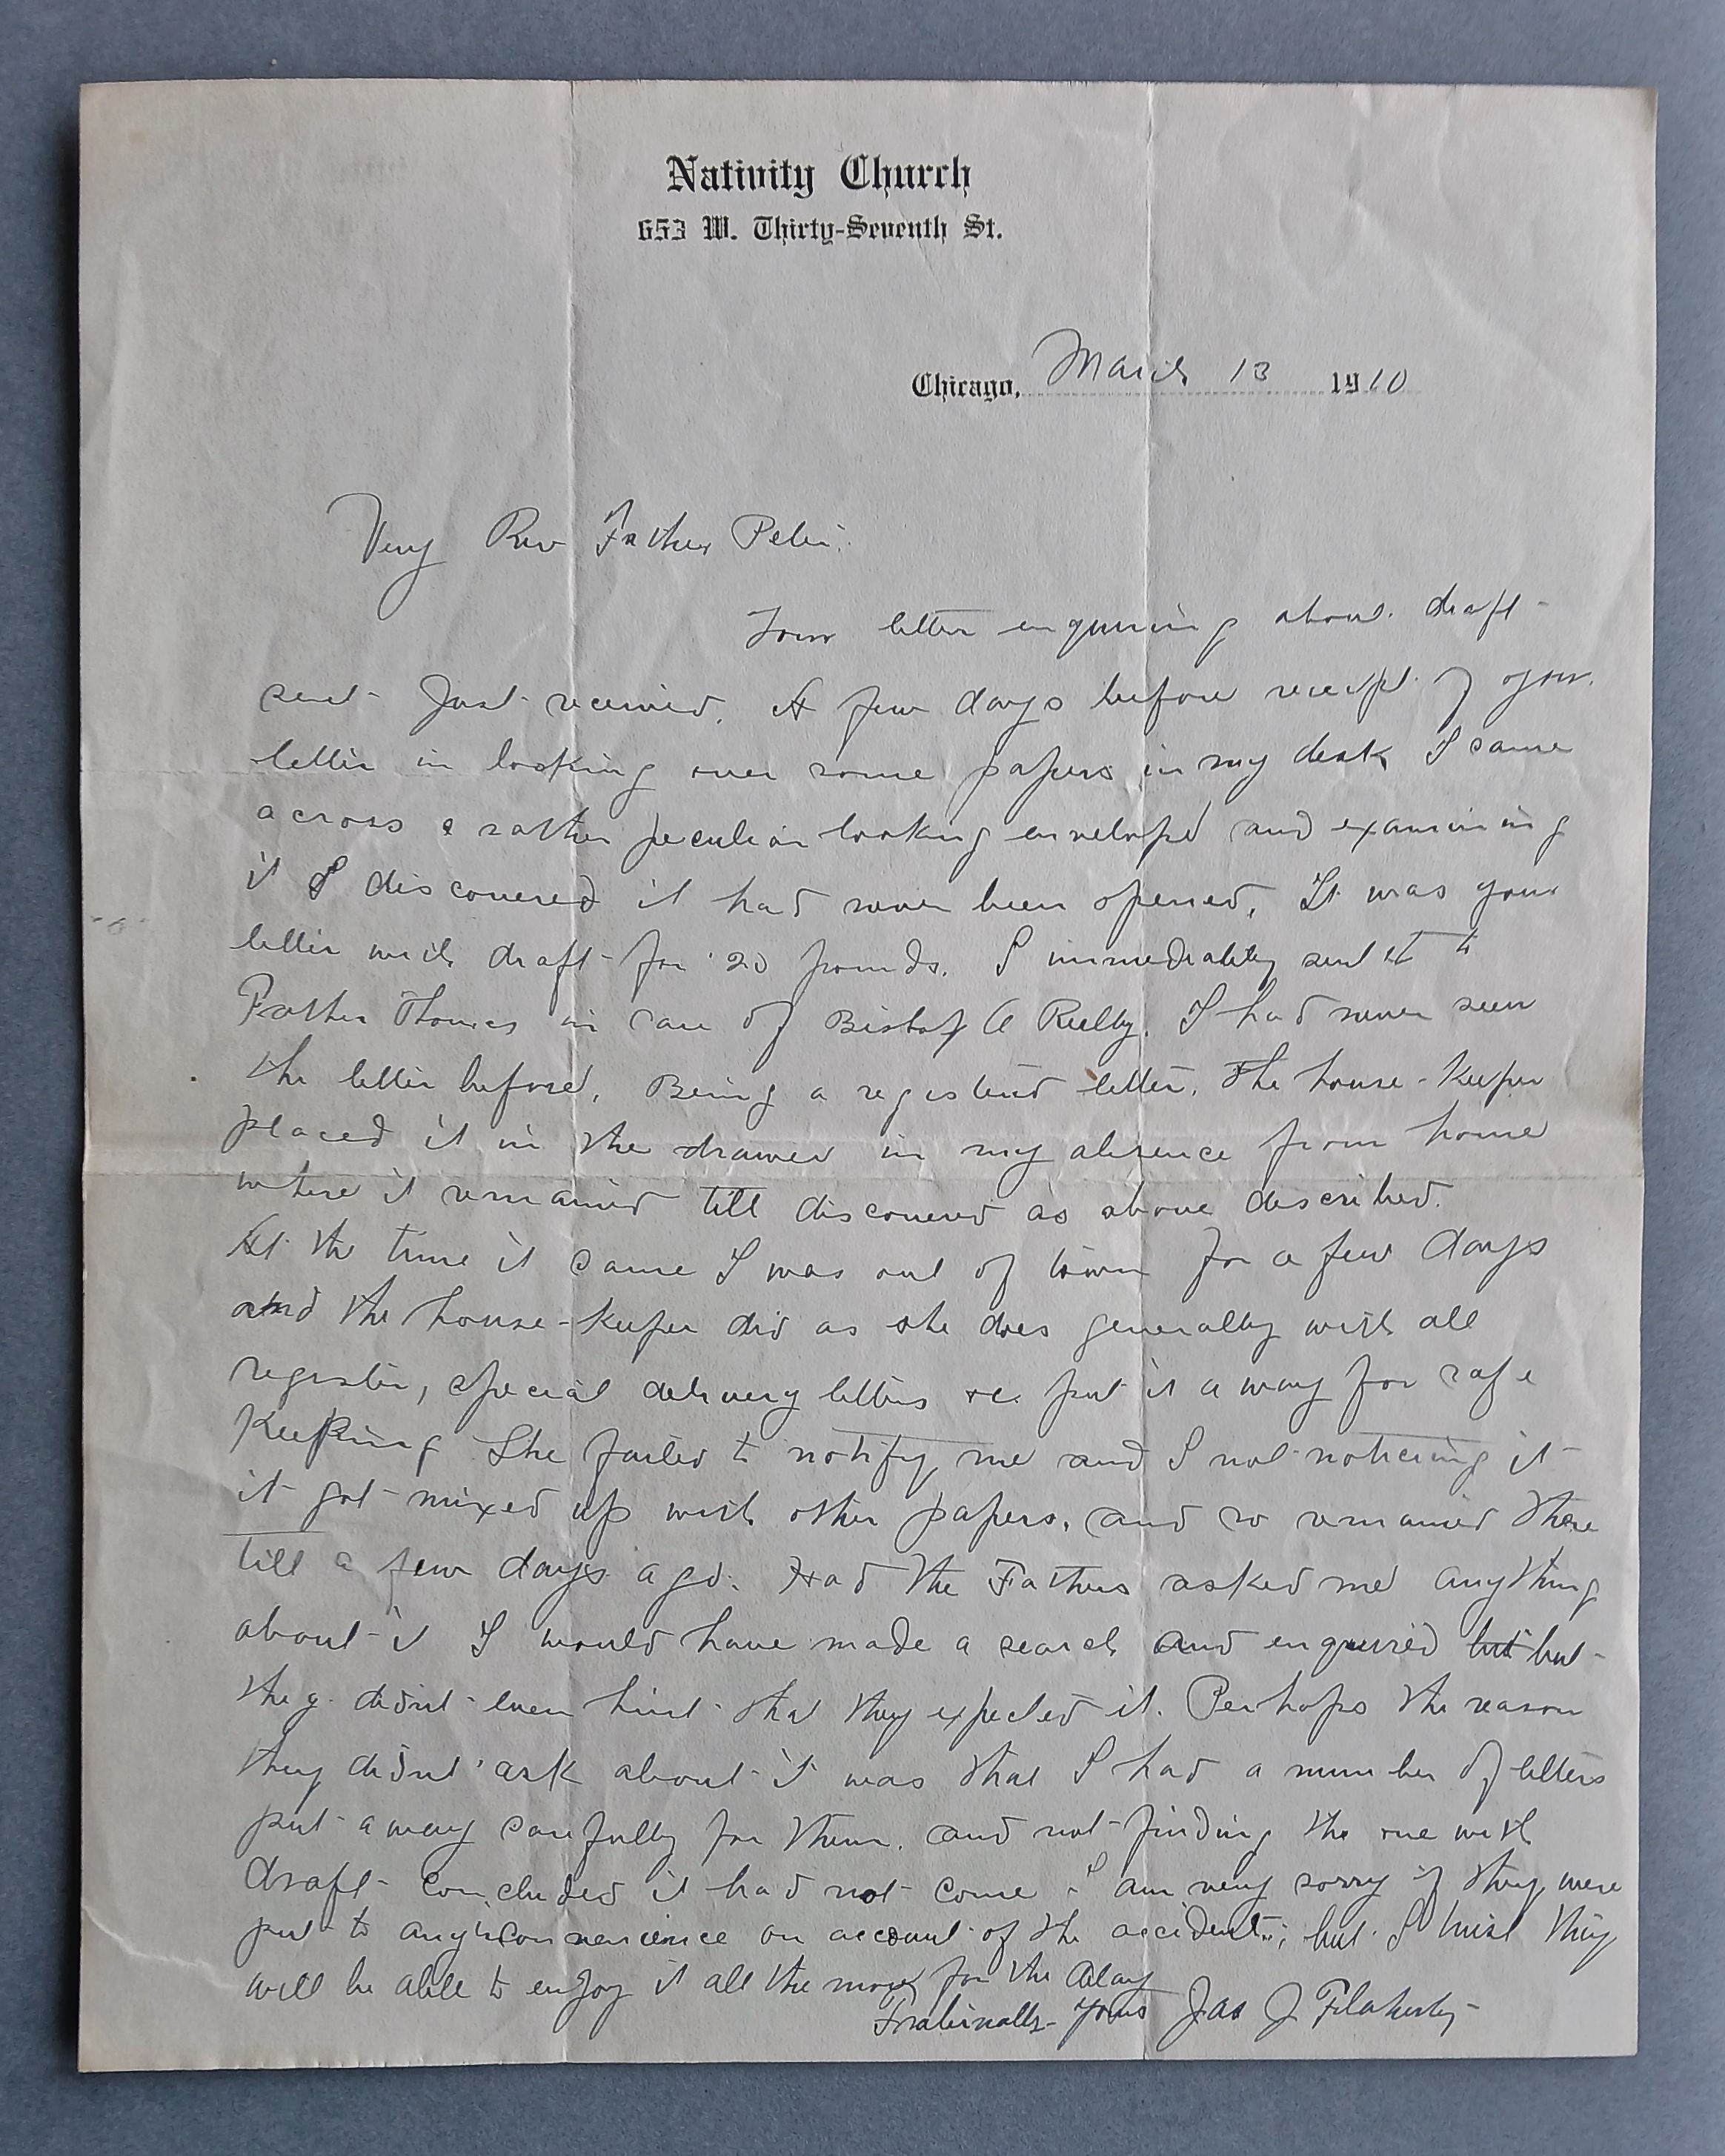 Nativity Church
653 W. Thirty-Seventh St.
Chicago, March 13 1910
Very Rev Father Peter:
Your letter enquiring about draft
sent just received. A few days before receipt of your
letter in looking over some papers in my desk I came
across a rather peculiar looking envelope and examining
it I discovered it had never been opened. It was your
letter with draft for 20 pounds. I immediately sent it to
Father Thomas in care of Bishop O Reilly. I had never seen
the letter before. Being a registered letter. The house-keeper
placed it in the drawer in my absence from home
where it remained till discovered as above described.
At the time it came I was out of town for a few days
and the house-keeper did as she does generally with all
register, special delivery letters &c. put it away for safe
keeping She failed to notify me and I not noticing it
it got mixed up with other papers, and so remained there
till a few days ago. Had the Fathers asked me anything
about it I would have made a search and enquired but but
they didnt even hint that they expected it. Perhaps the reason
they didnt ask about it was that I had a number of letters
put away carefully for them. and not finding the one with
draft concluded it had not come I am very sorry if they were
put to any inconvenience on account of the accident; but I trust they
will be able to enjoy it all the more for the delay
Fraternally yours Jas J Flaherty